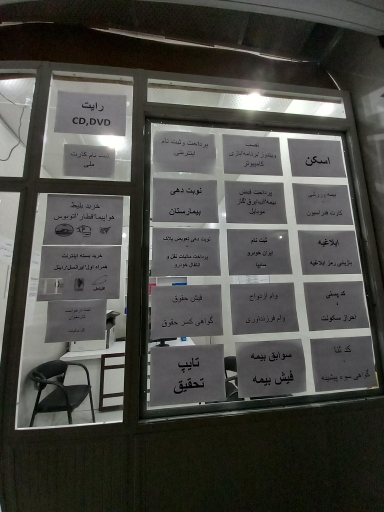 رایت
CD,DVD
ثبت نام کارت
ملی
خرید بلیط
هواپیما/قطار/اتوبوس
خرید بسته اینترنت
همراه اول/ایرانسل/رایتل
پرداخت و ثبت نام
اینترنتی
نصب
ویندوز/برنامه/بازی
کامپیوتر
اسکن
نوبت دهی
بیمارستان
پرداخت قبض
بیمه/آب/برق/گاز
موبایل
بیمه ورزشی
کارت فدراسیون
نوبت دهی تعویض پلاک
پرداخت مالیات نقل و
انتقال خودرو
ثبت نام
ایران خودرو
سایپا
ابلاغیه
بازیابی رمز ابلاغیه
فیش حقوق
گواهی کسر حقوق
وام ازدواج
وام فرزندآوری
کد پستی
احراز سکونت
تایپ
تحقیق
سوابق بیمه
فیش بیمه
کد ثنا
گواهی سوء پیشینه